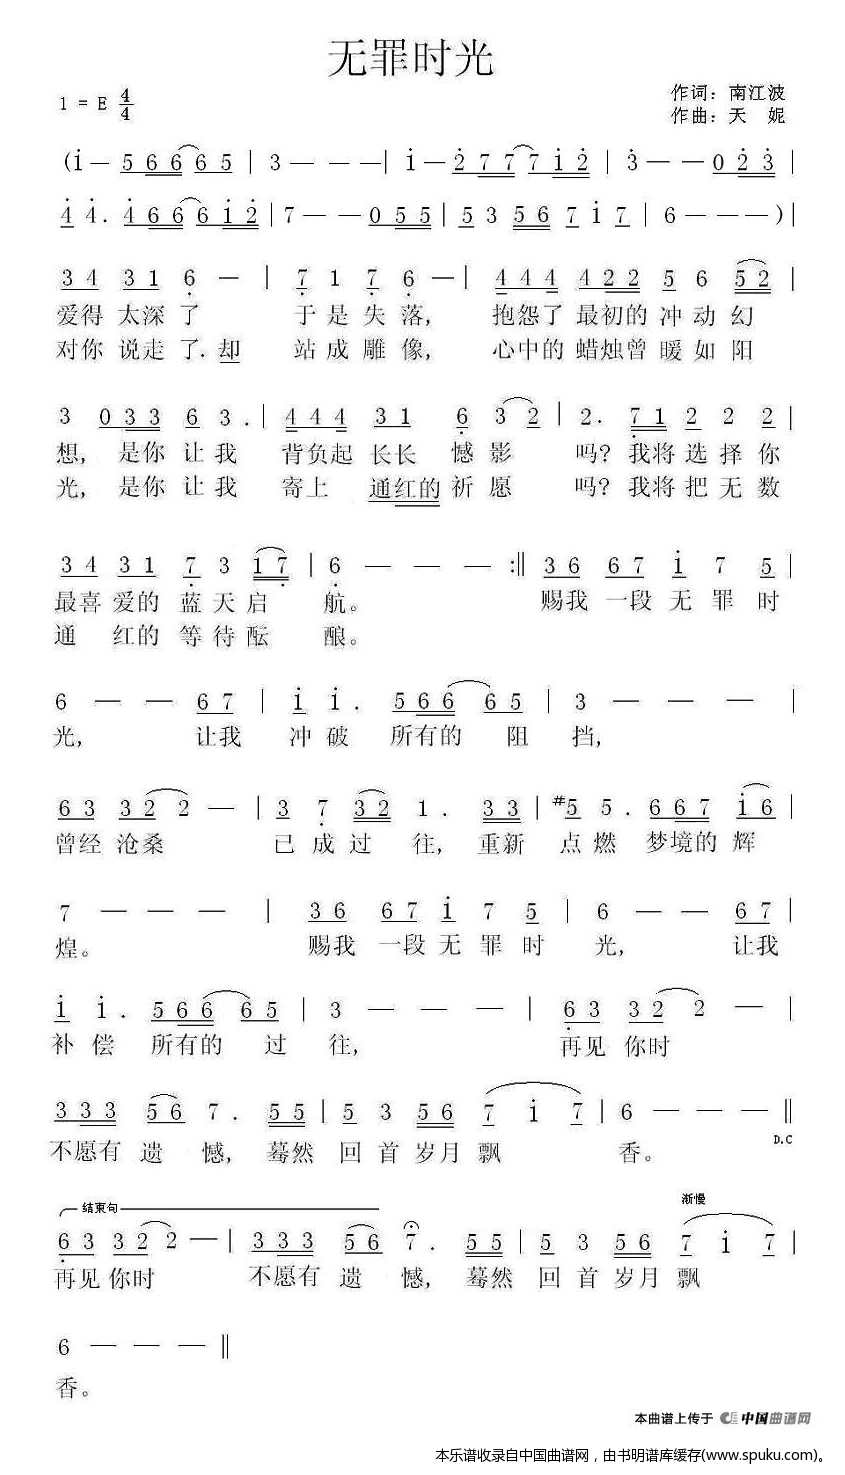 无罪时光
1 = E 4/4
作词：南江波
作曲：天　妮
(i— 5 6 6 6 6 5 | 3 — — —| i— 2 7 7 7 7 i 2 | 3 — — 0 2 3 |
4 4. 4 6 6 6 i 2 | 7 — — 0 5 5 | 5 3 5 6 7 i 7 | 6 — — — )|
3 4 3 1 6 — | 7 1 7 6 —| 4 4 4 4 2 2 5 6 5 2 |
爱得 太深 了 于 是 失 落, 抱怨了 最初的 冲 动 幻
对你 说走 了.却 站 成 雕 像, 心中的 蜡烛曾 暖 如 阳
3 0 3 3 6 3 . | 4 4 4 3 1 6 3 2 | 2. 7 1 2 2 2 |
想, 是你 让 我 背负起 长长 憾 影 吗? 我将 选 择 你
光, 是你 让 我 寄上 通红的 祈 愿 吗? 我将 把 无 数
3 4 3 1 7 3 1 7 | 6 — — — :‖ 3 6 6 7 i 7 5 |
最喜 爱的 蓝 天 启 航。 赐我 一段 无 罪 时
通 红的 等 待 酝 酿。
6 — — 6 7 | i i . 5 6 6 6 5 | 3 — — — |
光, 让我 冲 破 所有的 阻 挡,
6 3 3 2 2 — | 3 7 3 2 1 . 3 3 | #5 5 . 6 6 7 i 6 |
曾经 沧桑 已 成 过 往, 重新 点 燃 梦境的 辉
7 — — — | 3 6 6 7 i 7 5 | 6 — — 6 7 |
煌。 赐我 一段 无 罪 时 光, 让我
i i . 5 6 6 6 5 | 3 — — — | 6 3 3 2 2 — |
补 偿 所有的 过 往, 再见 你时
3 3 3 5 6 7 . 5 5 | 5 3 5 6 7 i 7 | 6 — — — ‖
D.C
不愿有 遗 憾, 蓦然 回 首 岁月 飘 香。
结束句 渐慢
6 3 3 2 2 — | 3 3 3 5 6 7 . 5 5 | 5 3 5 6 7 i 7 |
再见 你时 不愿有 遗 憾, 蓦然 回 首 岁月 飘
6 — — — ‖
香。
本曲谱上传于 中国曲谱网
本乐谱收录自中国曲谱网，由书明谱库缓存(www.spuku.com)。